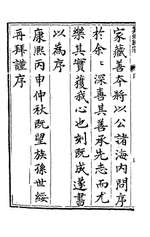 家藏善夲將以公諸海内問序
於余〻深喜其善承先志而尤
樂其實獲我心也刻既成遂書
以為序
康熙丙申仲秋既望族孫世綏
再拜謹序